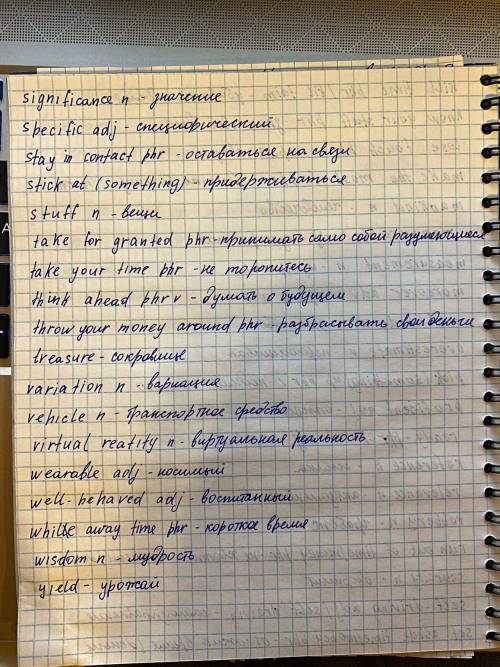 significance n - значение
specific adj - специфический
stay in contact phr - оставаться на связи
stick at (something) - придерживаться
stuff n - вещи
take for granted phr - принимать само собой разумеющиеся
take your time phr - не торопитесь
think ahead phr v - думать о будущем
throw your money around phr - разбрасывать свои деньги
treasure - сокровище
variation n - вариация
vehicle n - транспортное средство
virtual reality n - виртуальная реальность
wearable adj - носимый
well-behaved adj - воспитанный
while away time phr - короткое время
wisdom n - мудрость
yield - урожай